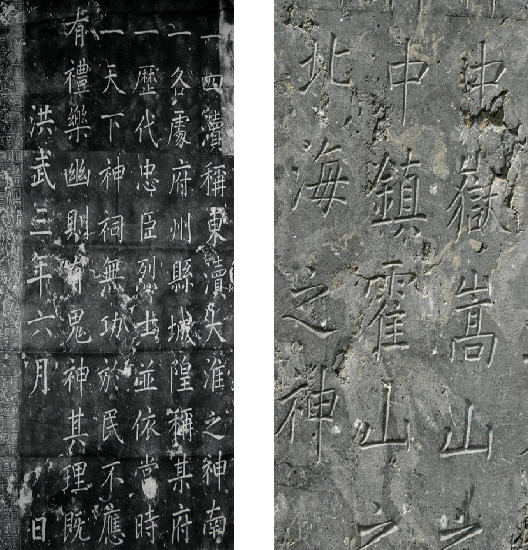 一四瀆稱東瀆大淮之神南
一各處府州縣城隍稱某府
一歷代忠臣烈士並依當時
一天下神祠無功於民不應
有禮樂幽則有鬼神其理既
洪武三年六月 日
中嶽嵩山之
中鎮霍山之
北海之神